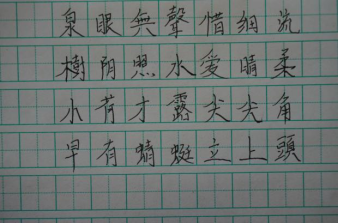 泉眼無聲惜細流
樹阴照水愛晴柔
小荷才露尖尖角
早有蜻蜓立上頭